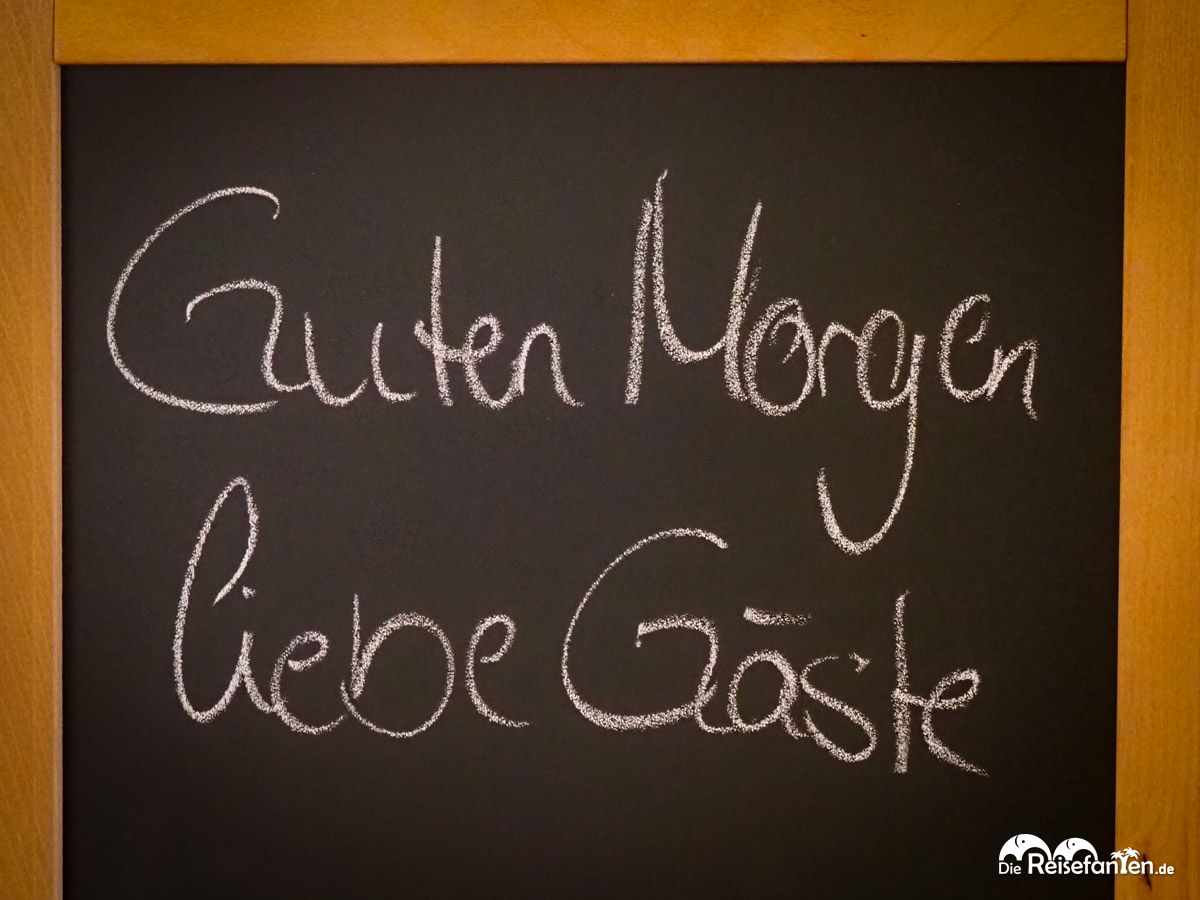 Guten Morgen
liebe Gäste
Die Reisefanten.de